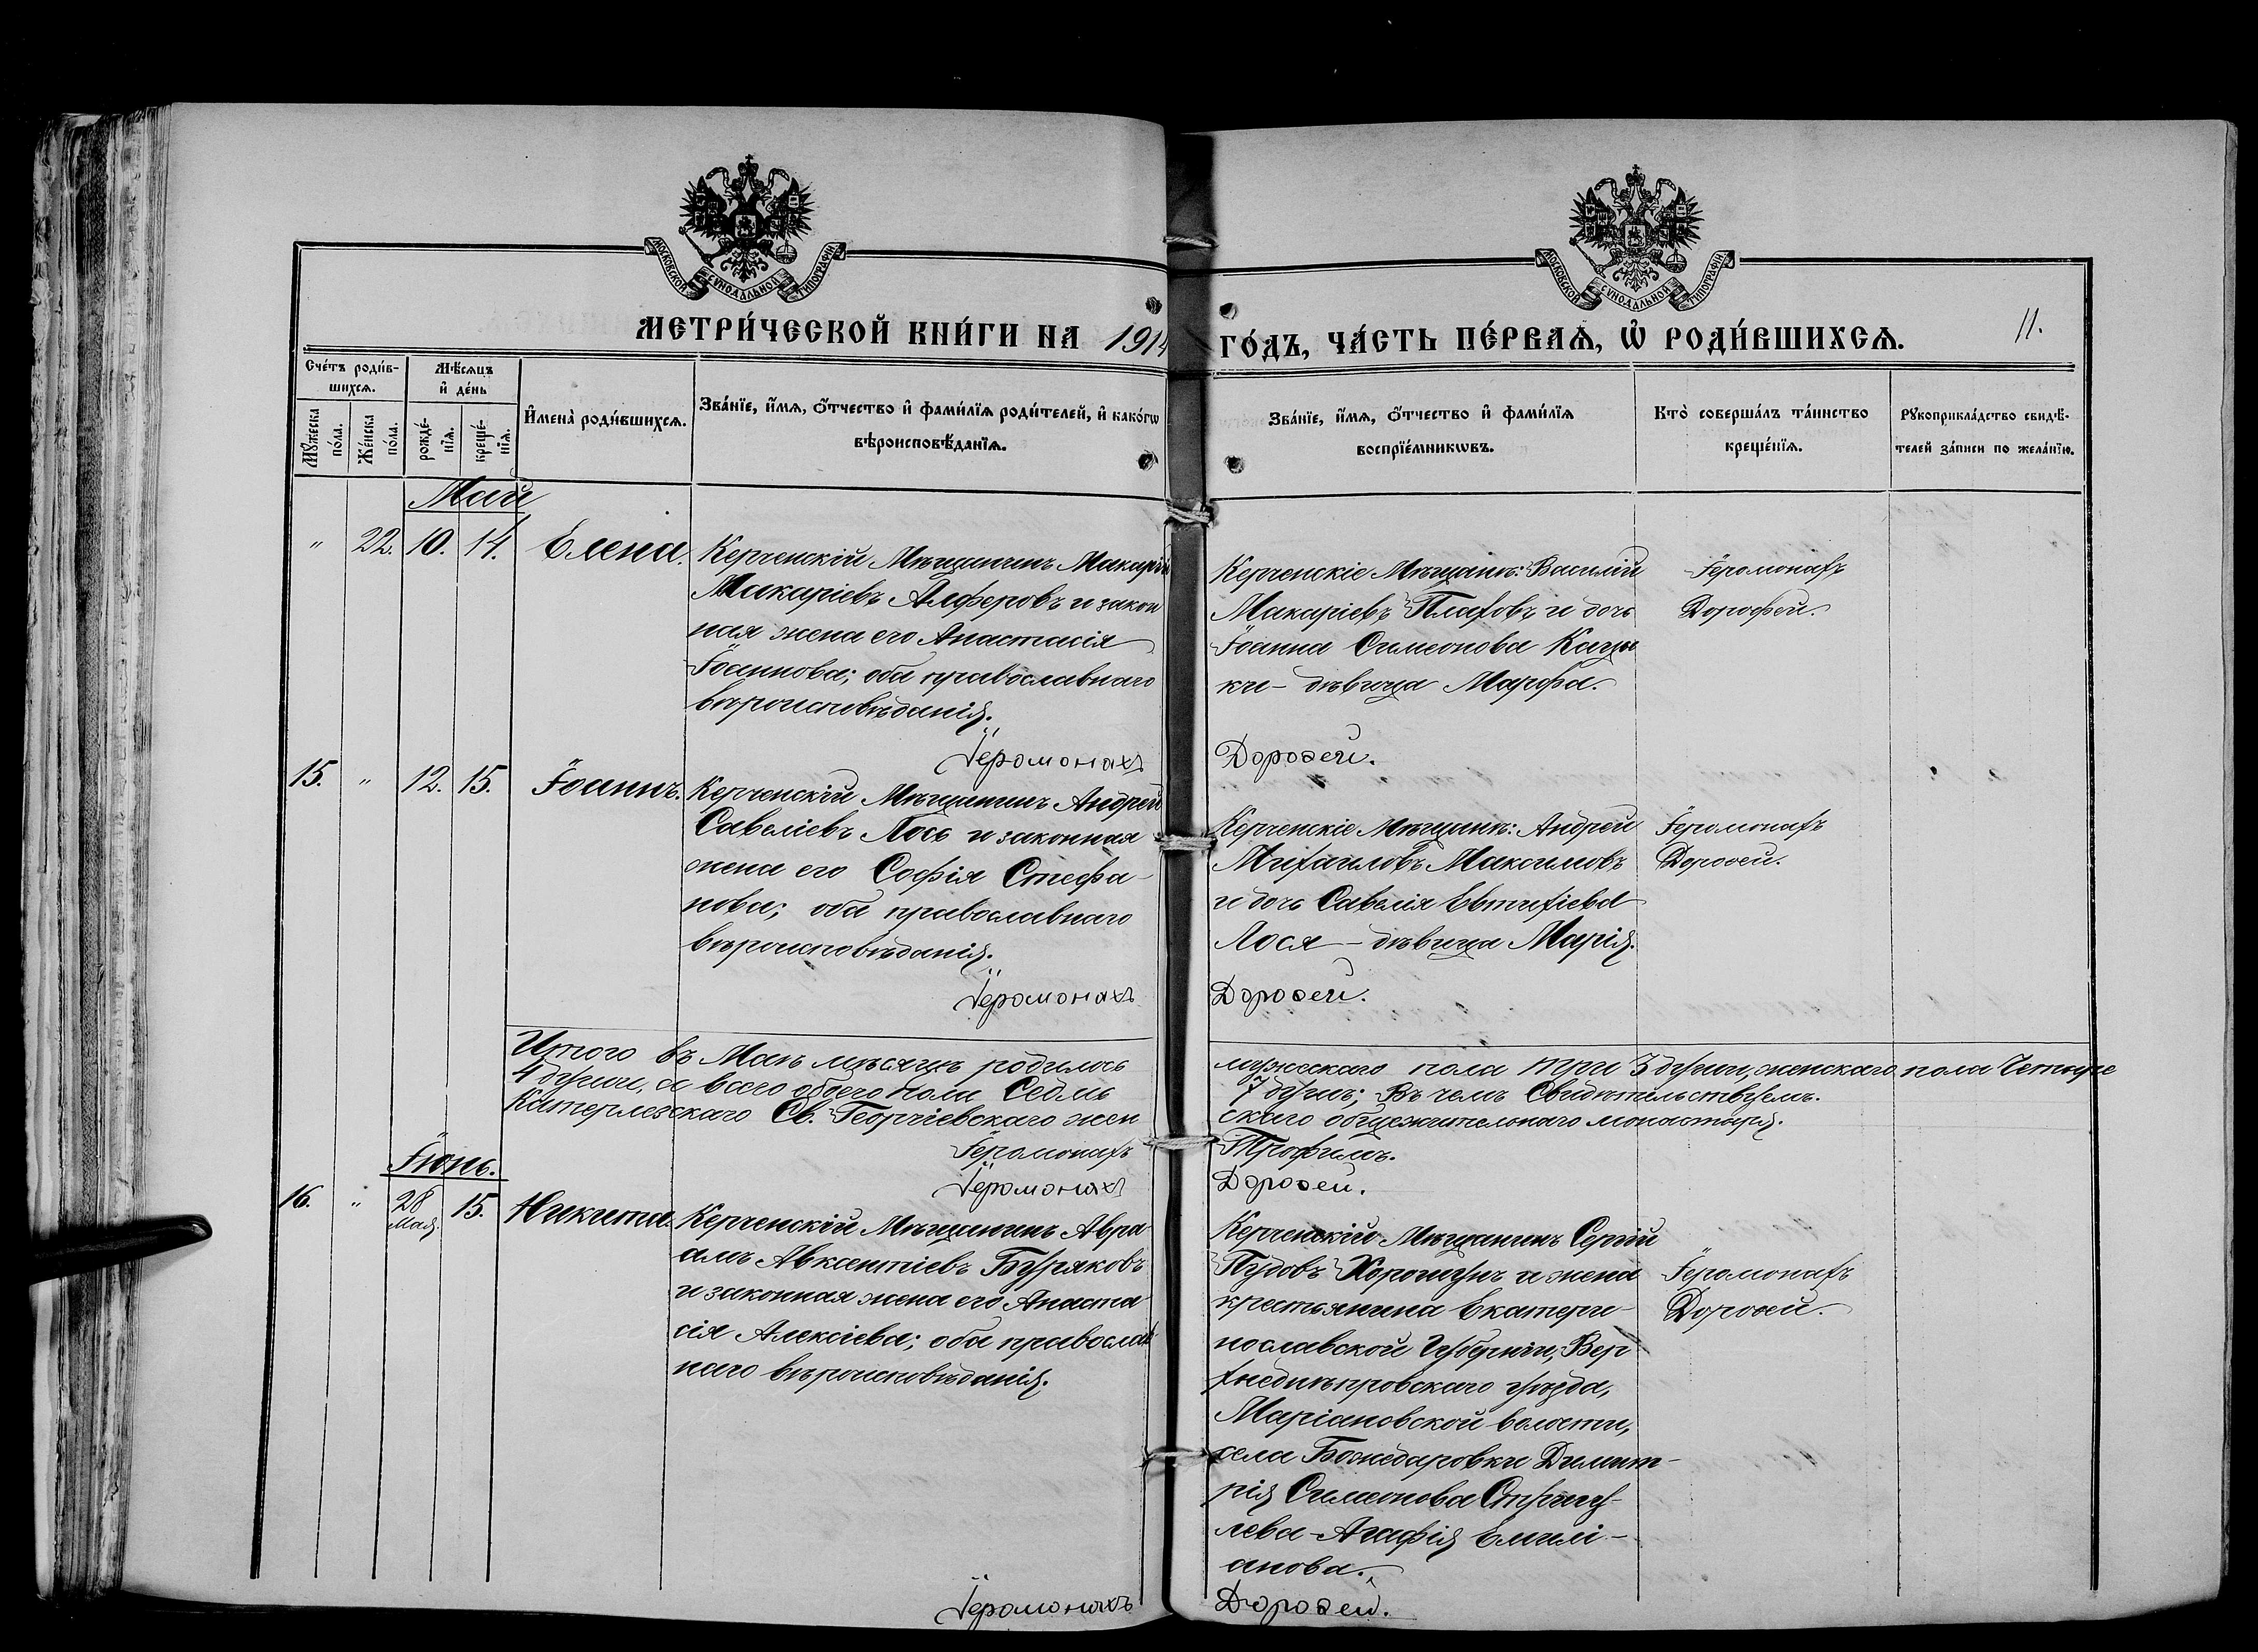 МОСКОВСКОЙ СѴНОДАЛЬНОЙ ТИПОГРАФІИ
МОСКОВСКОЙ СѴНОДАЛЬНОЙ ТИПОГРАФІИ
МЕТРИ́ЧЕСКОЙ КНИ́ГИ НА 1914 ГО́ДЪ, ЧА́СТЬ ПЕ́РВАѦ, Ѡ҆ РОДИ́ВШИХСѦ.
11.
Сче́тъ роди́в-
шихсѧ.
Мѣ́сѧцъ
и҆ де́нь
Мꙋжеска
по́ла.
Же́нска
по́ла.
рожде́-
нїѧ.
креще́-
нїѧ.
И҆мена̀ роди́вшихсѧ.
Зва́нїе, и҆́мѧ, ѻ҆́тчество и҆ фами́лїѧ роди́телей, и҆ како́гѡ
вѣроисповѣ́данїѧ.
Зва́нїе, и҆́мѧ, ѻ҆́тчество и҆ фами́лїѧ
воспрїе́мникѡвъ.
Кто̀ соверша́лъ та́инство
креще́нїѧ.
Рꙋкоприкла́дство свидѣ́-
телей за́писи по жела́нїю.
Май
" 22. 10. 14. Елена.
Керченскій Мѣщанинъ Макарій
Макаріевъ Алферовъ и закон
ная жена его Анастасія
Іоаннова; оба православнаго
вѣроисповѣданія.
Керченскіе Мѣщане: Василій
Макаріевъ Плаховъ и дочь
Іоанна Симеонова
ки - дѣвица Марфа.
Іеромонахъ
Дорофей.
Іеромонахъ Дороѳей.
15. " 12. 15. Іоаннъ.
Керченскій Мѣщанинъ Андрей
Савеліевъ Лось и законная
жена его Софія Стефа-
нова; оба православнаго
вѣроисповѣданія.
Керченскіе Мѣщане: Андрей
Михаиловъ Максимовъ
и дочь Савелія Евтихіева
Лося - дѣвица Марія.
Іеромонахъ
Дороѳей.
Іеромонахъ Дороѳей.
Итого въ Маѣ мѣсяцѣ родилось мужескаго пола три 3 души, женскаго пола Четыре
4 души, а всего обоего пола Седмь 7 душъ; Въ чемъ Свидѣтельствуемъ.
Катерлезскаго Св. Георгіевскаго жен скаго общежительнаго монастыря.
Іеромонахъ Трофимъ.
Іеромонахъ Дороѳей.
Іюнь.
16. " 28 15. Никита.
Мая.
Керченскій Мѣщанинъ Авра
амъ Авксентіевъ Буряковъ
и законная жена его Анаста
сія Алексіева; оба православ
наго вѣроисповѣданія.
Керченскій Мѣщанинъ Сергій
Пудовъ Хорошунъ и жена
крестьянина Екатери-
нославской Губерніи, Вер
хнеднѣпровскаго уѣзда,
Маріановской волости,
села Божедаровки Димит-
рія Симеонова
лева - Агафія Емилі-
анова.
Іеромонахъ
Дороѳей.
Іеромонахъ Дороѳей.